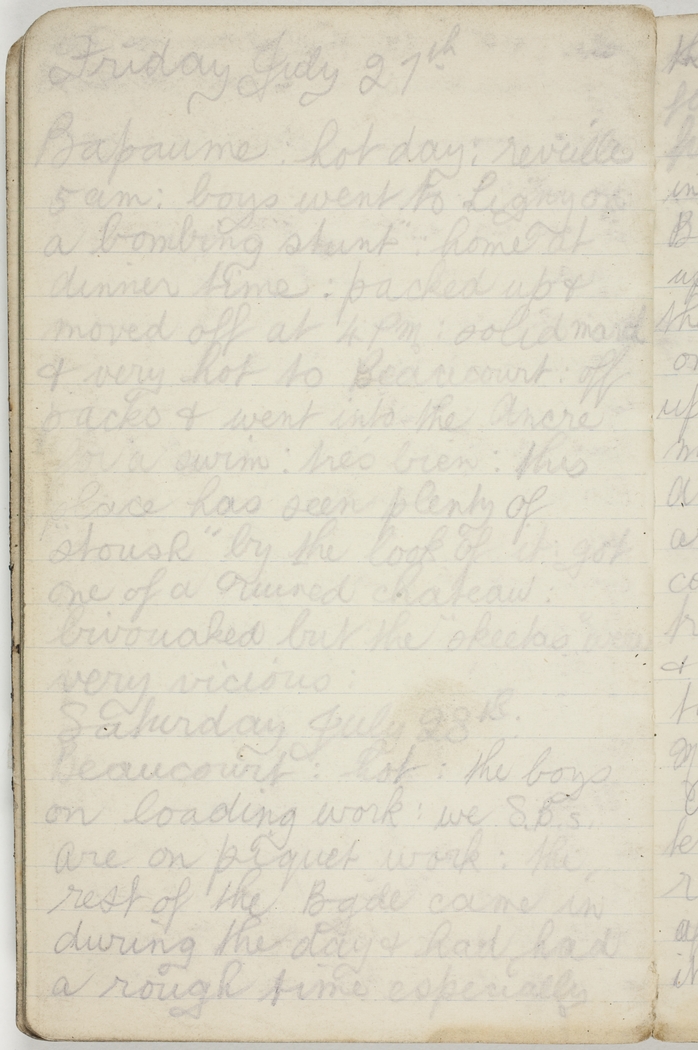 Friday July 27th
Bapaume: hot day: reveille
5 am: boys went to Ligny on
a bombing "stunt": home at
dinner time: packed up &
moved off at 4 Pm: solid march
& very hot to Beaucourt: off
packs & went into the Ancre
for a swim: trés bien: this
place has seen plenty of
"stoush" by the look of it: got
one of a ruined chateau:
bivouaked but the "skeetas" were
very vicious:
Saturday July 28th.
Beaucourt: hot: the boys
on loading work: we S.B.s.
are on piquet work: the
rest of the Bgde came in
during the day & had had
a rough time especially